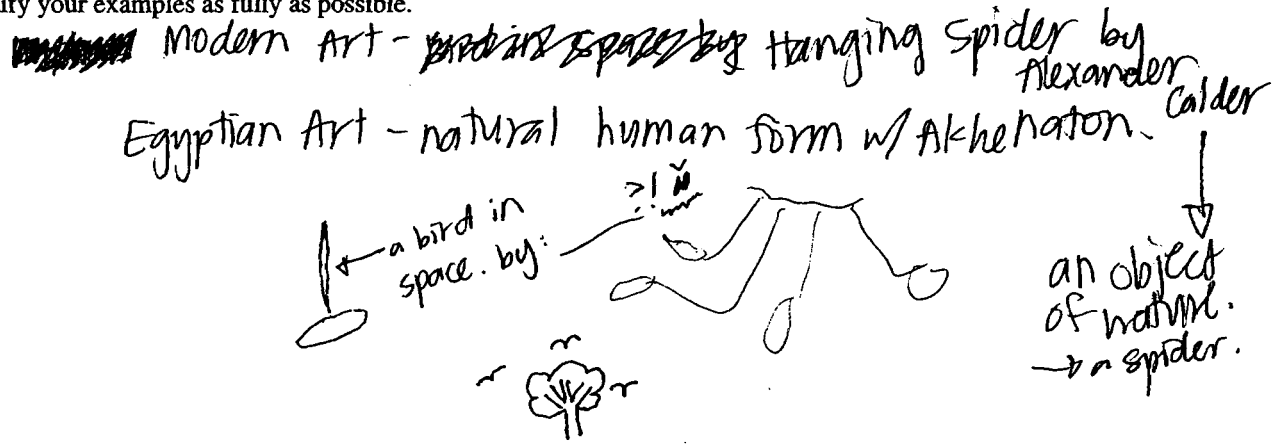 ify your examples as fully as possible.
Modern Art - bird in space by Hanging Spider by
Alexander
Calder
Egyptian Art - natural human form w/ Akhenaton.
a bird in
space. by:
?!
an object
of nature.
→ a spider.